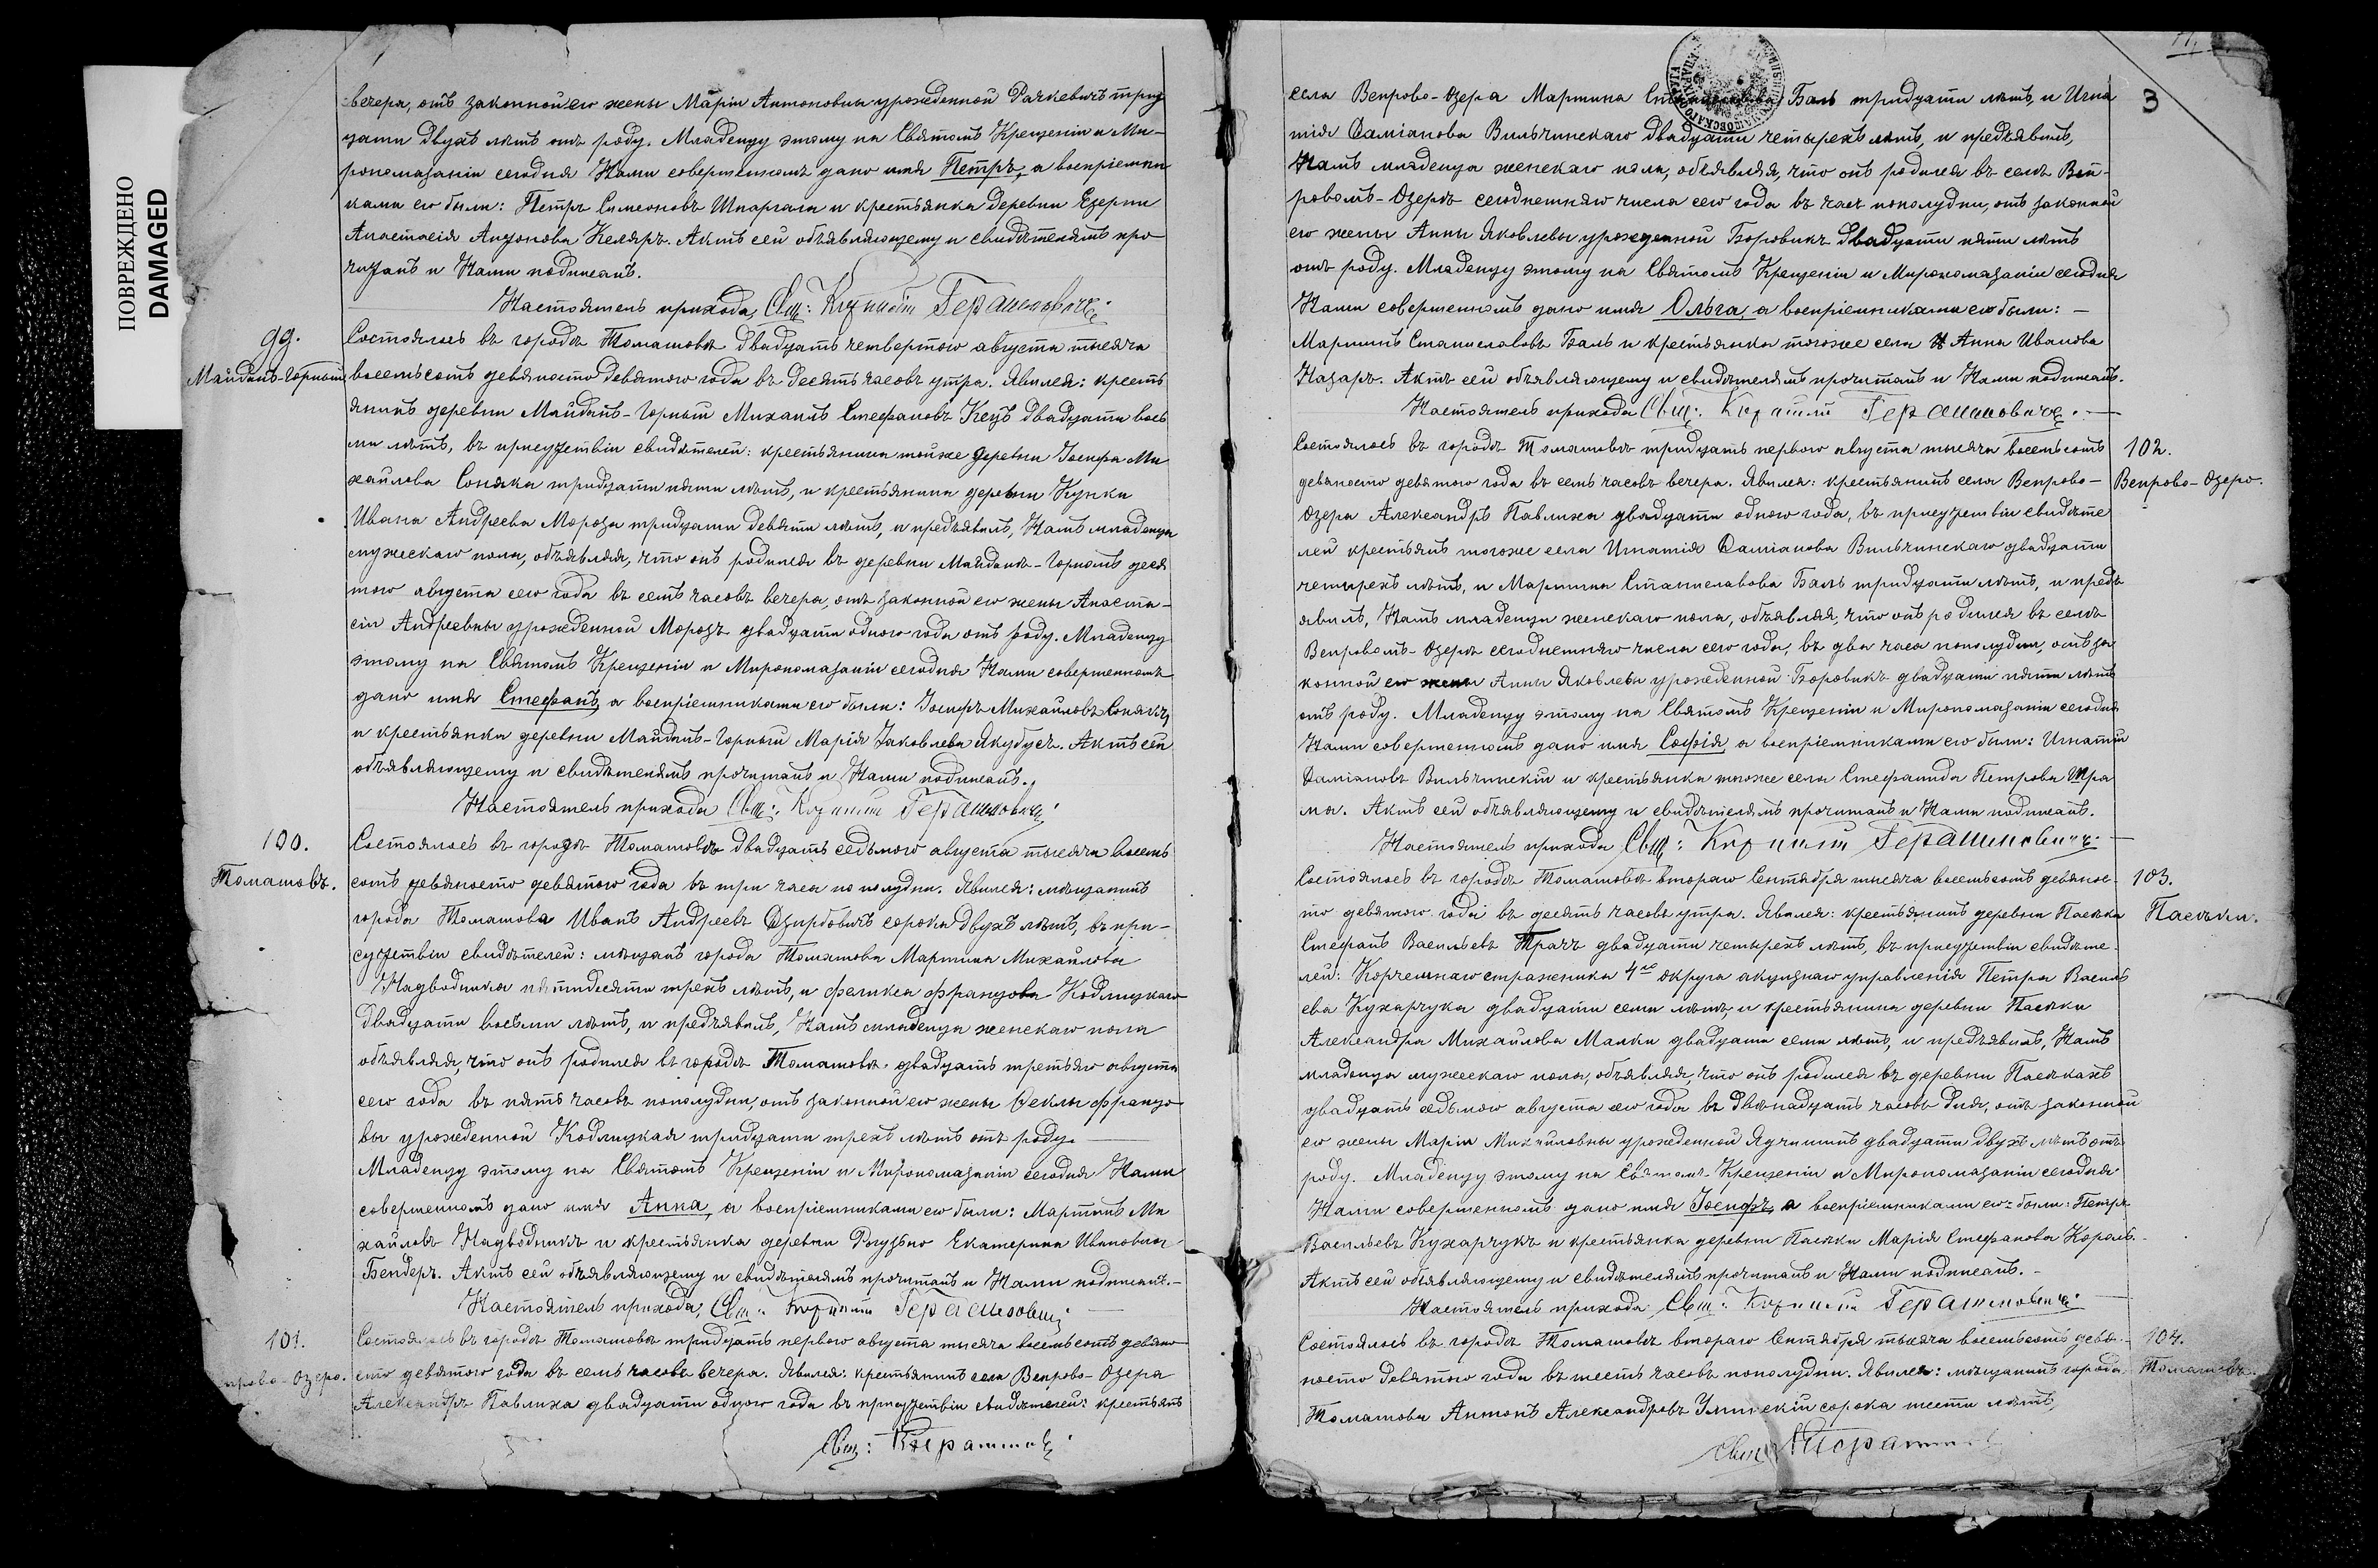 ПОВРЕЖДЕНО
DAMAGED
вечера, отъ законной его жены Маріи Антоновны урожденной Рачкевичъ трид
цати двухъ лѣтъ отъ роду. Младенцу этому на Святомъ Крещеніи и Ми-
ропомазаніи сегодня Нами совершенномъ дано имя Петръ, а воспріемни
ками его были: Петръ Симеоновъ Шпаргала и крестьянка деревни Езерни
Анастасія Келяръ. Актъ сей объявляющему и свидѣтелямъ про
читанъ и Нами подписанъ.
Настоятель прихода, Свщ:
99.
Майданъ-Горный
Состоялось въ городѣ Томашовѣ двадцать четвертого августа тысяча
восемьсотъ девяносто девятого года въ десять часовъ утра. Явился: кресть
янинъ деревни Майданъ-Горный Михаилъ Стефановъ Кецъ двадцати вось
ми лѣтъ, въ присутствіи свидѣтелей: крестьянина тойже деревни Іосифа Ми
хайлова Соняка тридцати пяти лѣтъ, и крестьянина деревни Кунки
Ивана Андреева Мороза тридцати девяти лѣтъ, и предъявилъ, Намъ младенца
мужескаго пола, объявляя, что онъ родился въ деревни Майданѣ-Горномъ деся
того августа сего года въ семь часовъ вечера, отъ законной его жены Анаста-
сіи Андреевны урожденной Морозъ двадцати одного года отъ роду. Младенцу
этому на Святомъ Крещеніи и Миропомазаніи сегодня Нами совершенномъ
дано имя Стефанъ, а воспріемниками его были: Іосифъ Михайловъ Сонякъ,
и крестьянка деревни Майданъ-Горный Марія Іаковлева Якубусъ. Актъ сей
объявляющему и свидѣтелямъ прочитанъ и Нами подписанъ.
Настоятель прихода Свщ:
100.
Томашовъ.
Состоялось въ городѣ Томашовѣ двадцать седьмого августа тысяча восемь
сотъ девяносто девятого года въ три часа по полудни. Явился: мѣщанинъ
города Томашова Иванъ Андреевъ сорока двухъ лѣтъ, въ при-
сутствіи свидѣтелей: мѣщанъ города Томашова Мартина Михайлова
Надводника пятидесяти трехъ лѣтъ, и Феликса Францова Кодлуцкаго
двадцати восьми лѣтъ, и предъявилъ, Намъ младенца женскаго пола
объявляя, что онъ родился въ городѣ Томашовѣ двадцать третьяго августа
сего года въ пять часовъ пополудни, отъ законной его жены Феклы Францо
вы урожденной Кодлуцкая тридцати трехъ лѣтъ отъ роду.
Младенцу этому на Святомъ Крещеніи и Миропомазаніи сегодня Нами
совершенномъ дано имя Анна, а воспріемниками его были: Мартинъ Ми
хайловъ Надводникъ и крестьянка деревни Рогузьно Екатерина Ивановна
Бендеръ. Актъ сей объявляющему и свидѣтелямъ прочитанъ и Нами подписанъ.
Настоятель прихода, Свщ:
101.
Озеро.
Состоялось въ городѣ Томашовѣ тридцать первого августа тысяча восемьсотъ девяно
сто девятого года въ семь часовъ вечера. Явился: крестьянинъ села Вепрово-Озера
Александръ Павлиха двадцати одного года въ присутствіи свидѣтелей: крестьянъ
Свщ:
3
села Вепрово-Озера Мартина Баль тридцати лѣтъ, и Игна
тія Даміанова Вильчинскаго двадцати четырехъ лѣтъ, и предъявилъ,
Намъ младенца женскаго пола, объявляя, что онъ родился въ селѣ Веп-
ровомъ-Озерѣ сегоднешняго числа сего года въ часъ пополудни, отъ законной
его жены Анны Яковлевы урожденной Боровикъ двадцати пяти лѣтъ
отъ роду. Младенцу этому на Святомъ Крещеніи и Миропомазаніи сегодня
Нами совершенномъ дано имя Ольга, а воспріемниками его были:
Мартинъ Станиславовъ Баль и крестьянка тогоже села Анна Иванова
Назаръ. Актъ сей объявляющему и свидѣтелямъ прочитанъ и Нами подписанъ.
Настоятель прихода Свщ:
102.
Вепрово-Озеро.
Состоялось въ городѣ Томашовѣ тридцать первого августа тысяча восемьсотъ
девяносто девятого года въ семь часовъ вечера. Явился: крестьянинъ села Вепрово-
Озера Александръ Павлиха двадцати одного года, въ присутствіи свидѣте
лей крестьянъ тогоже села Игнатія Даміанова Вильчинскаго двадцати
четырехъ лѣтъ, и Мартина Станиславова Баль тридцати лѣтъ, и предъ
явилъ, Намъ младенца женскаго пола, объявляя, что онъ родился въ селѣ
Вепровомъ-Озерѣ сегоднешняго числа сего года, въ два часа пополудни, отъ за
конной его жены Анны Яковлевы урожденной Боровикъ двадцати пяти лѣтъ
отъ роду. Младенцу этому на Святомъ Крещеніи и Миропомазаніи сегодня
Нами совершенномъ дано имя Софія, а воспріемниками его были: Игнатій
Даміановъ Вильчинскій и крестьянка тогоже села Стефанида Петрова
Актъ сей объявляющему и свидѣтелямъ прочитанъ и Нами подписанъ.
Настоятель прихода Свщ:
103.
Пасѣки.
Состоялось въ городѣ Томашовѣ второго Сентября тысяча восемьсотъ девянос-
то девятого года въ десять часовъ утра. Явился: крестьянинъ деревни Пасѣки
Стефанъ Васильевъ Трачъ двадцати четырехъ лѣтъ, въ присутствіи свидѣте-
лей: Корчемнаго стражника 4го округа акцизнаго управленія Петра Василь
ева Кухарчука двадцати семи лѣтъ, и крестьянина деревни Пасѣки
Александра Михайлова Малки двадцати семи лѣтъ, и предъявилъ, Намъ
младенца мужескаго пола, объявляя, что онъ родился въ деревни Пасѣкахъ
двадцать седьмого августа сего года въ двѣнадцать часовъ дня, отъ законной
его жены Маріи Михайловны урожденной двадцати двухъ лѣтъ отъ
роду. Младенцу этому на Святомъ Крещеніи и Миропомазаніи сегодня
Нами совершенномъ дано имя Іосифъ, а воспріемниками его были: Петръ
Васильевъ Кухарчукъ и крестьянка деревни Пасѣки Марія Стефанова Король.
Актъ сей объявляющему и свидѣтелямъ прочитанъ и Нами подписанъ.
Настоятель прихода Свщ:
104.
Томашовъ.
Состоялось въ городѣ Томашовѣ второго Сентября тысяча восемьсотъ девя-
носто девятого года въ шесть часовъ пополудни. Явился: мѣщанинъ города
Томашова Антонъ Александровъ сорока шести лѣтъ,
Свщ